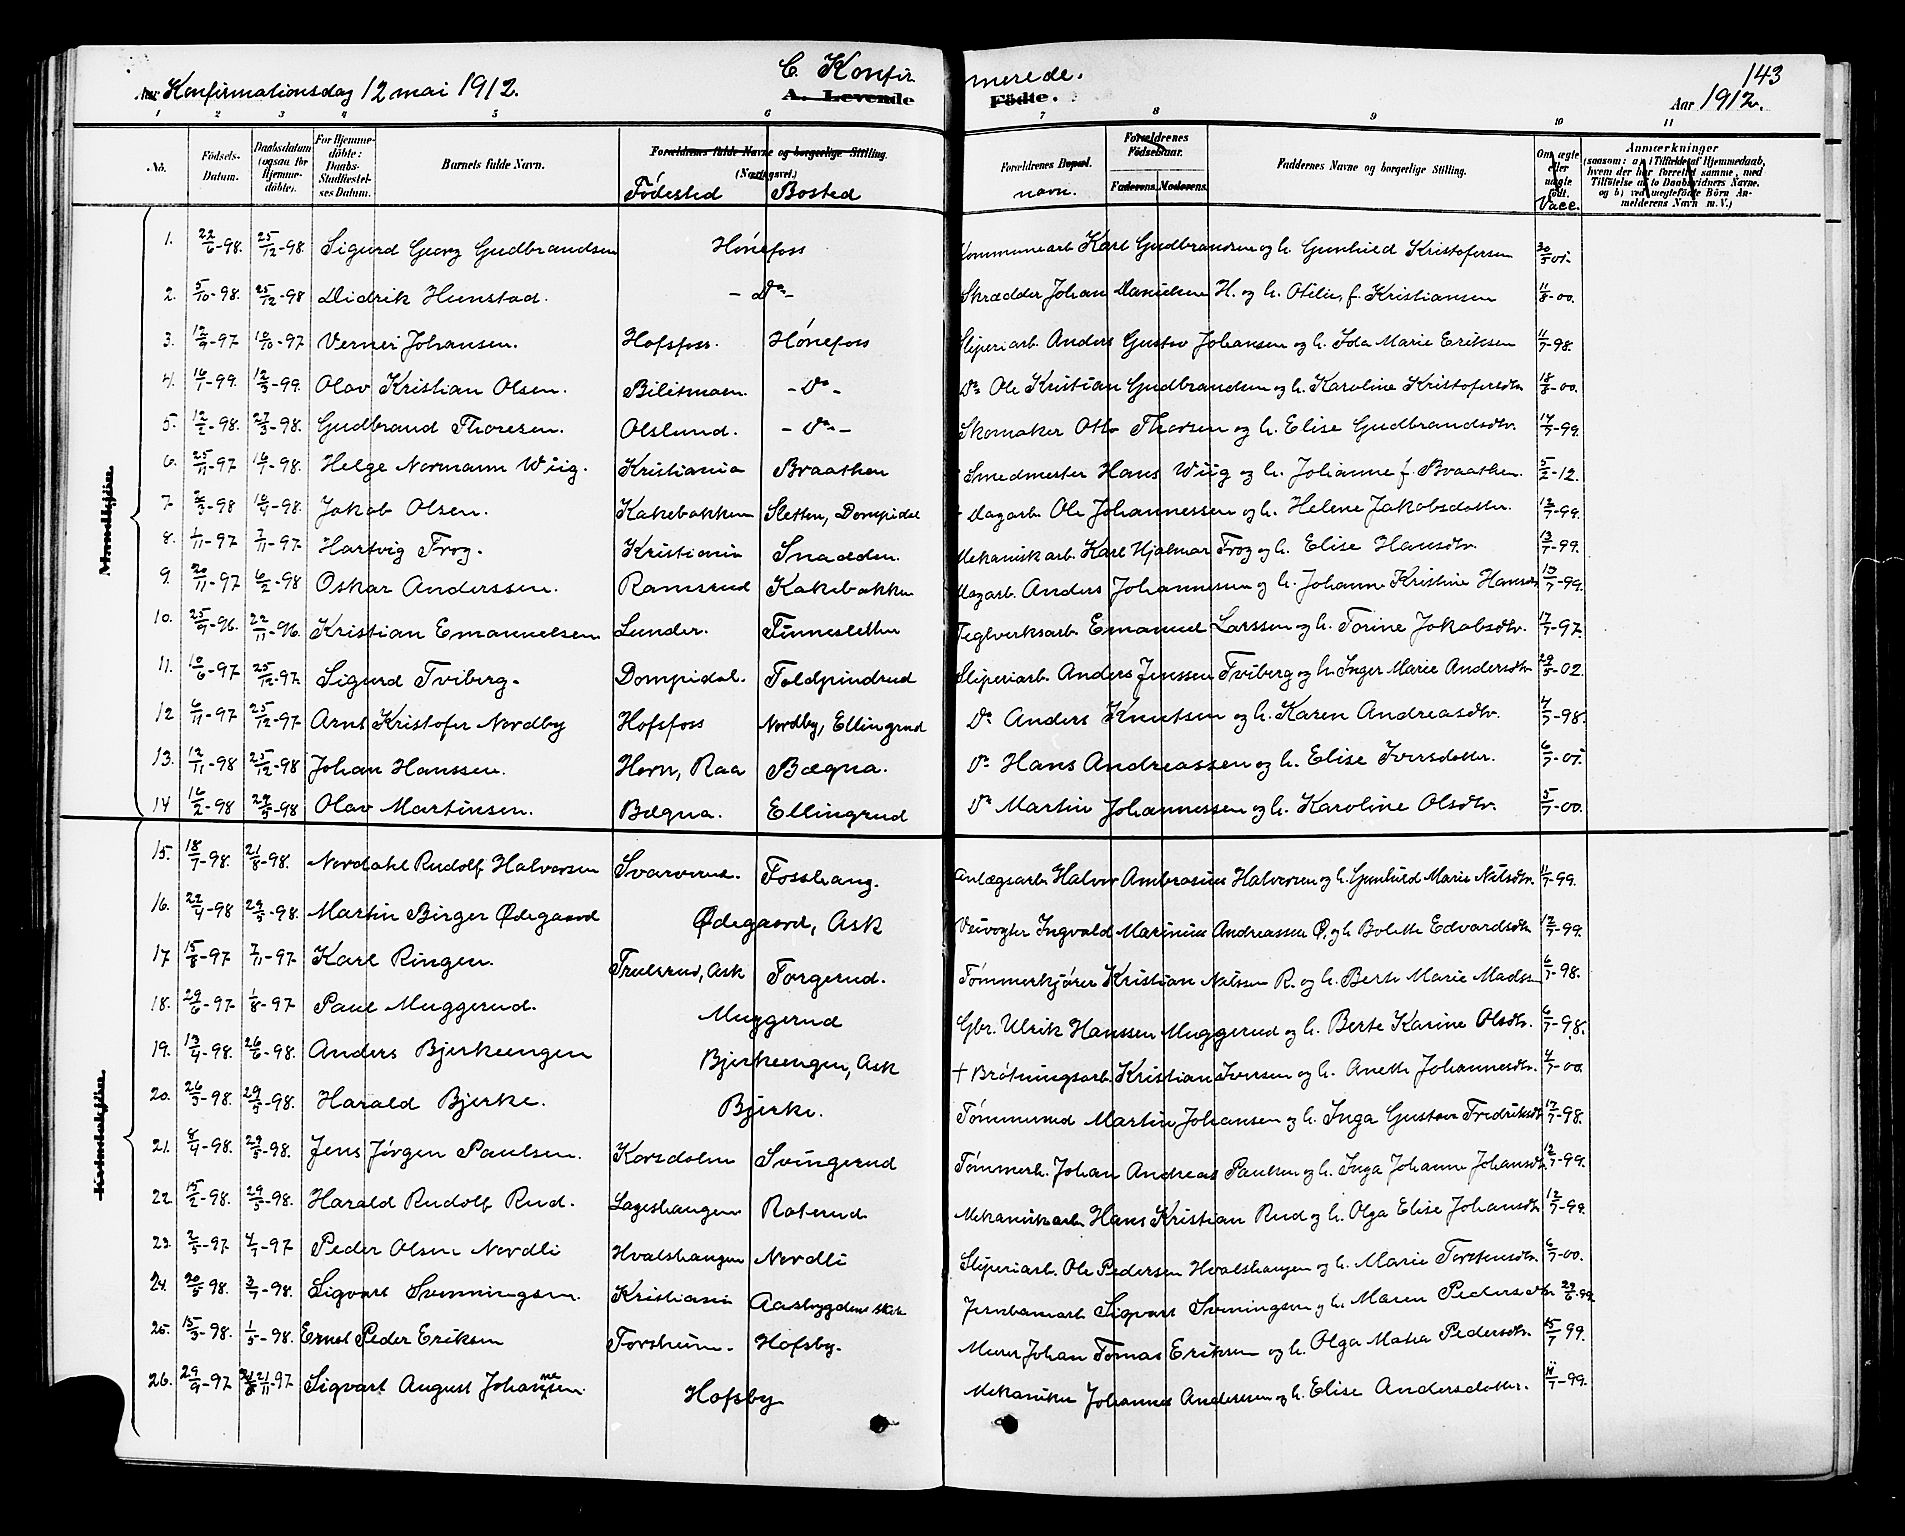 C. Konfirmerede.
143
Aar Konfirmationsdag 12 mai 1912.
A. Levende Fødte.
Aar 1912.
1 2 3 4 5 6 7 8 9 10 11
No. Fødsels-Datum. Daabsdatum (ogsaa for Hjemmedøbte). For Hjemmedøbte: Daabs-Stadfæstelses Datum. Barnets fulde Navn. Forældrenes fulde Navne og borgerlige Stilling. (Næringsvei.) Fødested Bosted Forældrenes Bopæl. navn. Forældrenes Fødselsaar. Faderens. Moderens. Faddernes Navne og borgerlige Stilling. Om ægte eller uægte født. Vacc. Anmærkninger (saasom: a) i Tilfælde af Hjemmedaab, hvem der har forrettet samme, med Tilføielse af to Daabsvidners Navne, og b) ved uægtefødte Børn Anmelderens Navn m. V.)
Mandkjøn
1. 22/6-98. 25/12-98. Sigurd Georg Gudbrandsen Hönefoss Kommunearb. Karl Gudbrandsen og h. Gunhild Kristofersen 30/5-01.
2. 5/10-98. 25/12-98 Didrik Hunstad. - Do - Skrædder Johan Danielsen H. og h. Otilie, f. Kristiansen 11/8-00.
3. 12/9-97 10/10-97 Verner Johansen. Hofsfoss. Hönefoss Sliperiarb. Anders Gustav Johansen og h. Ida Marie Eriksen 11/7-98.
4. 16/1-99. 12/3-99. Olav Kristian Olsen. Bilitmoen. - Do - Do Ole Kristian Gudbrandsen og h. Karoline Kristofersdtr. 18/8-00.
5. 12/2-98. 27/3-98. Gudbrand Thoresen. Olslund. - Do - Skomaker Otto Thorsen og h. Elise Gudbrandsdtr. 14/7-99.
6. 25/11-97 16/1-98. Helge Normann Wiig. Kristiania Braathen Smedmester Hans Wiig og h. Johanne f. Braathen. 5/2-12.
7. 2/3-98 10/4-98. Jakob Olsen. Kakebakken Sletten, Dompidal Dagarb. Ole Johannessen og h. Helene Jakobsdatter. 12/7-99.
8. 1/11-97 7/11-97. Hartvig Frog. Kristiania Snadden. Mekanisk arb. Karl Hjalmar Frog og h. Elise Hansdtr. 13/7-99.
9. 20/11-97 6/2-98 Oskar Anderssen. Ramsrud Kakebakken Dagarb. Anders Johannessen og h. Johanne Kristine Hansdtr. 13/7-99.
10. 25/9-96. 22/11-96. Kristian Emanuelsen Lunder. Finnesletten Teglverksarb. Emanuel Larssen og h. Torine Jakobsdtr. 17/7-97.
11. 10/6-97 25/12-97. Sigurd Tviberg. Dompidal. Foldpindrud Sliperiarb. Anders Jenssen Tviberg og h. Inger Marie Andersdtr. 29/5-02.
12 6/11-97 25/12-97 Arnt Kristofer Nordby Hofsfoss Nordby, Ellingrud Do Anders Knutsen og h. Karen Andreasdtr. 4/7-98.
13. 12/11-98 25/12-98 Johan Hanssen. Horn, Raa Bægna. Do Hans Andreassen og h. Elise Iversdatter. 6/7-01.
14 16/2-98 29/5-98 Olav Martinsen. Bægna. Ellingrud Do Martin Johannessen og h. Karoline Olsdtr. 5/7-00.
Kvindekjøn
15. 18/7-98. 21/8-98. Nordahl Rudolf Halvorsen Svarverud. Fosshaug. Anlægsarb. Halvor Ambrosius Halvorsen og h. Gunhild Marie Nilsdtr. 11/7-99.
16. 22/4-98 29/5-98. Martin Birger Ødegaard Ødegaard, Ask Veivogter Ingvald Marinius Andreassen Ø. og h. Bolette Edvardsdtr. 12/7-99.
17 15/8-97 7/11-97. Karl Ringen. Trulsrud, Ask Torgerud. Tømmerkjører Kristian Nilssen R. og h. Berte Marie Madsen 6/7-98.
18. 29/6-97 1/8-97. Paul Muggerud. Muggerud Gbr. Ulrik Hanssen Muggerud og h. Berte Karine Olsdtr. 6/7-98.
19. 13/4-98. 26/6-98. Anders Bjerkeengen Bjerkeengen, Ask + Brötningsarb. Kristian Iversen og h. Anette Johannesdtr. 4/7-00.
20. 26/3-98. 29/5-98. Harald Bjerke. Bjerke. Martin Johansen og h. Inga Gustava Fredriksdtr. 12/7-98.
21. 8/4-98. 29/5-98. Jens Jörgen Paulsen. Korsdalen Svingerud Tømmerh. Johan Andreas Paulsen og h. Inga Johanne Johansdtr. 12/7-99.
22. 15/2-98. 29/5-98. Harald Rudolf Rud. Lageshaugen Roterud Mekanisk arb. Hans Kristian Rud og h. Olga Elise Johansdtr. 12/7-99.
23. 2/5-97. 4/7-97 Peder Olsen Nordli Hvalshaugen Nordli Sliperiarb. Ole Pedersen Hvalshaugen og h. Marie Torstensdtr. 6/7-00.
24. 20/5-98. 3/7-98. Sigvart Svenningsen. Kristiania Aasbygdens skole Jernbanearb. Sigvart Svenningsen og h. Maren Pedersdtr 22/6-99.
25. 15/3-98. 1/5-98. Ernst Peder Eriksen Torsheim. Hofsby. Murer Johan Tomas Eriksen og h. Olga Matea Pedersdtr. 15/7 99.
26. 29/9-97 21/11-97. Sigvart August Johannesen. Hofsby Mekaniker Johannes Andersen og h. Elise Andersdatter. 11/7-99.